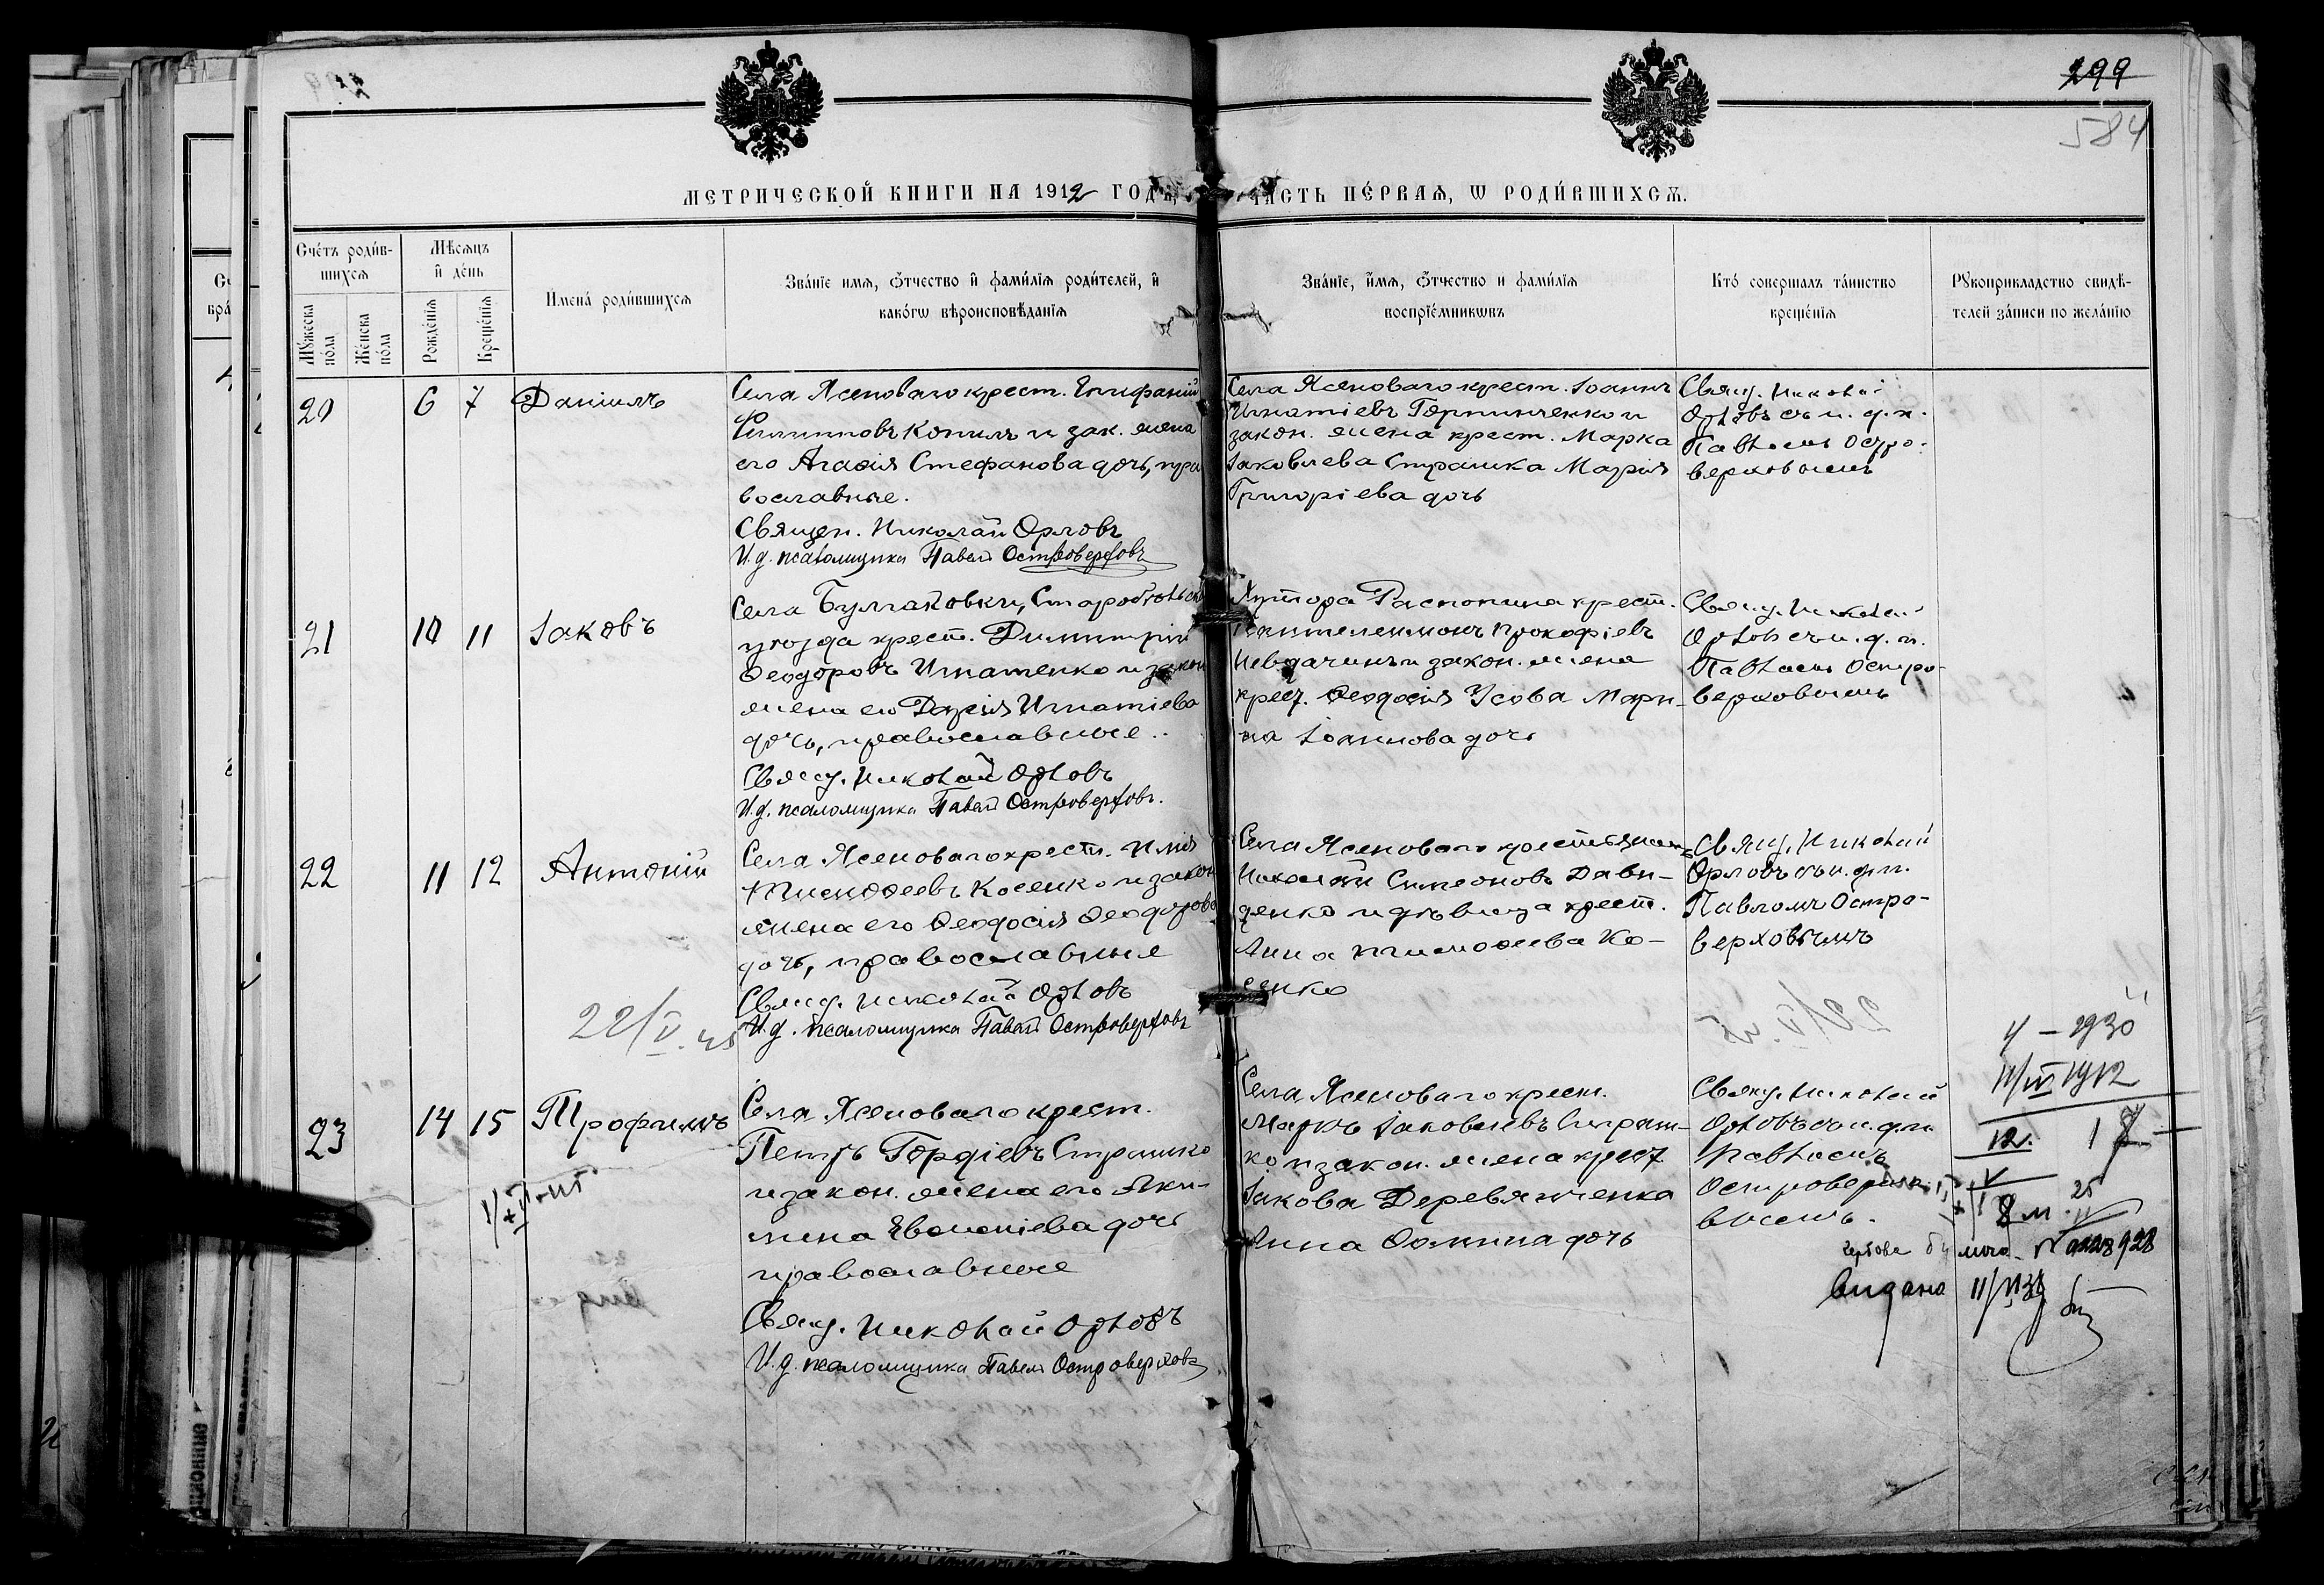 299
584
МЕТРИЧЕСКОЙ КНИГИ НА 1912 ГОДЪ,
ЧАСТЬ ПЕ́РВАѦ, Ѡ РОДИ́ВШИХСѦ.
Сче́тъ роди́в-
шихсѧ
Мѣ́сѧцъ
и҆ де́нь
Мꙋ́жеска
по́ла
Же́нска
по́ла
Рожде́нїѧ
Креще́нїѧ
И҆мена̀ роди́вшихсѧ
Зва́нїе имѧ, ѻ҆́тчество и҆ фамѝлїѧ роди́телей, и҆
како́гѡ вѣроисповѣ́данїѧ
Зва́нїе, и҆́мѧ, ѻ҆́тчество и фамѝлїѧ
воспрїе́мникѡвъ
Кто́ совершалъ та́инство
креще́нїѧ
Рꙋкоприкладство свидѣ́-
телей за́писи по жела́нїю
20
6
7
Данiилъ
Села Ясеноваго крест. Епифанiй
Филипповъ Копилъ и зак. жена
его Агафiя Стефанова дочь, пра
вославные.
Священ. Николай Орловъ
И. д. псаломщика Павелъ Островерховъ
Села Ясеноваго крест. Iоаннъ
Игнатiевъ Горпинченко и
закон. жена крест. Марка
Iаковлева Страшка Марiя
Григорiева дочь
Свящ. Николай
Орловъ съ и. д. п.
Павломъ Остро-
верховымъ
21
10
11
Iаковъ
Села Булгаковки, Старобѣльск
уѣзда крест. Димитрiй
Ѳеодоровъ Игнатенко и закон
жена его Дарiя Игнатiева
дочь, православные.
Свящ. Николай Орловъ
И. д. псаломщика Павелъ Островерховъ.
Хутора Распопина крест.
Пантелеимонъ Прокофiевъ
Невдачинъ и закон. жена
крест. Ѳеодосiя Усова Мари-
на Iоаннова дочь
Свящ. Николай
Орловъ съ и. д. п.
Павломъ Остро-
верховымъ
22
11
12
Антонiй
Села Ясеноваго крест. Илiя
Тимоѳеевъ Косенко и закон
жена его Ѳеодосiя Ѳеодорова
дочь, православные
Свящ. Николай Орловъ
И. д. псаломщика Павелъ Островерховъ
Села Ясеноваго крестьянинъ
Николай Симеоновъ Дави-
денко и дѣвица крест.
Анна Тимоѳеева Ко-
сенко
Свящ. Николай
Орловъ съ и. д. п.
Павломъ Остро-
верховымъ
22/V.45
23
14
15
Трофимъ
Села Ясеноваго крест.
Петръ Гордiевъ Страшко
и закон. жена его Аки-
лина Евѳимiева дочь
православные
Свящ. Николай Орловъ
И. д. псаломщика Павелъ Островерховъ
Села Ясеноваго крест.
Маркъ Iаковлевъ Страш-
ко и закон. жена крест
Iакова Деревянченка
Анна Ѳомина дочь
Свящ. Николай
Орловъ съ и. д. п.
Павломъ
Островерхо-
вымъ.
1912
видана